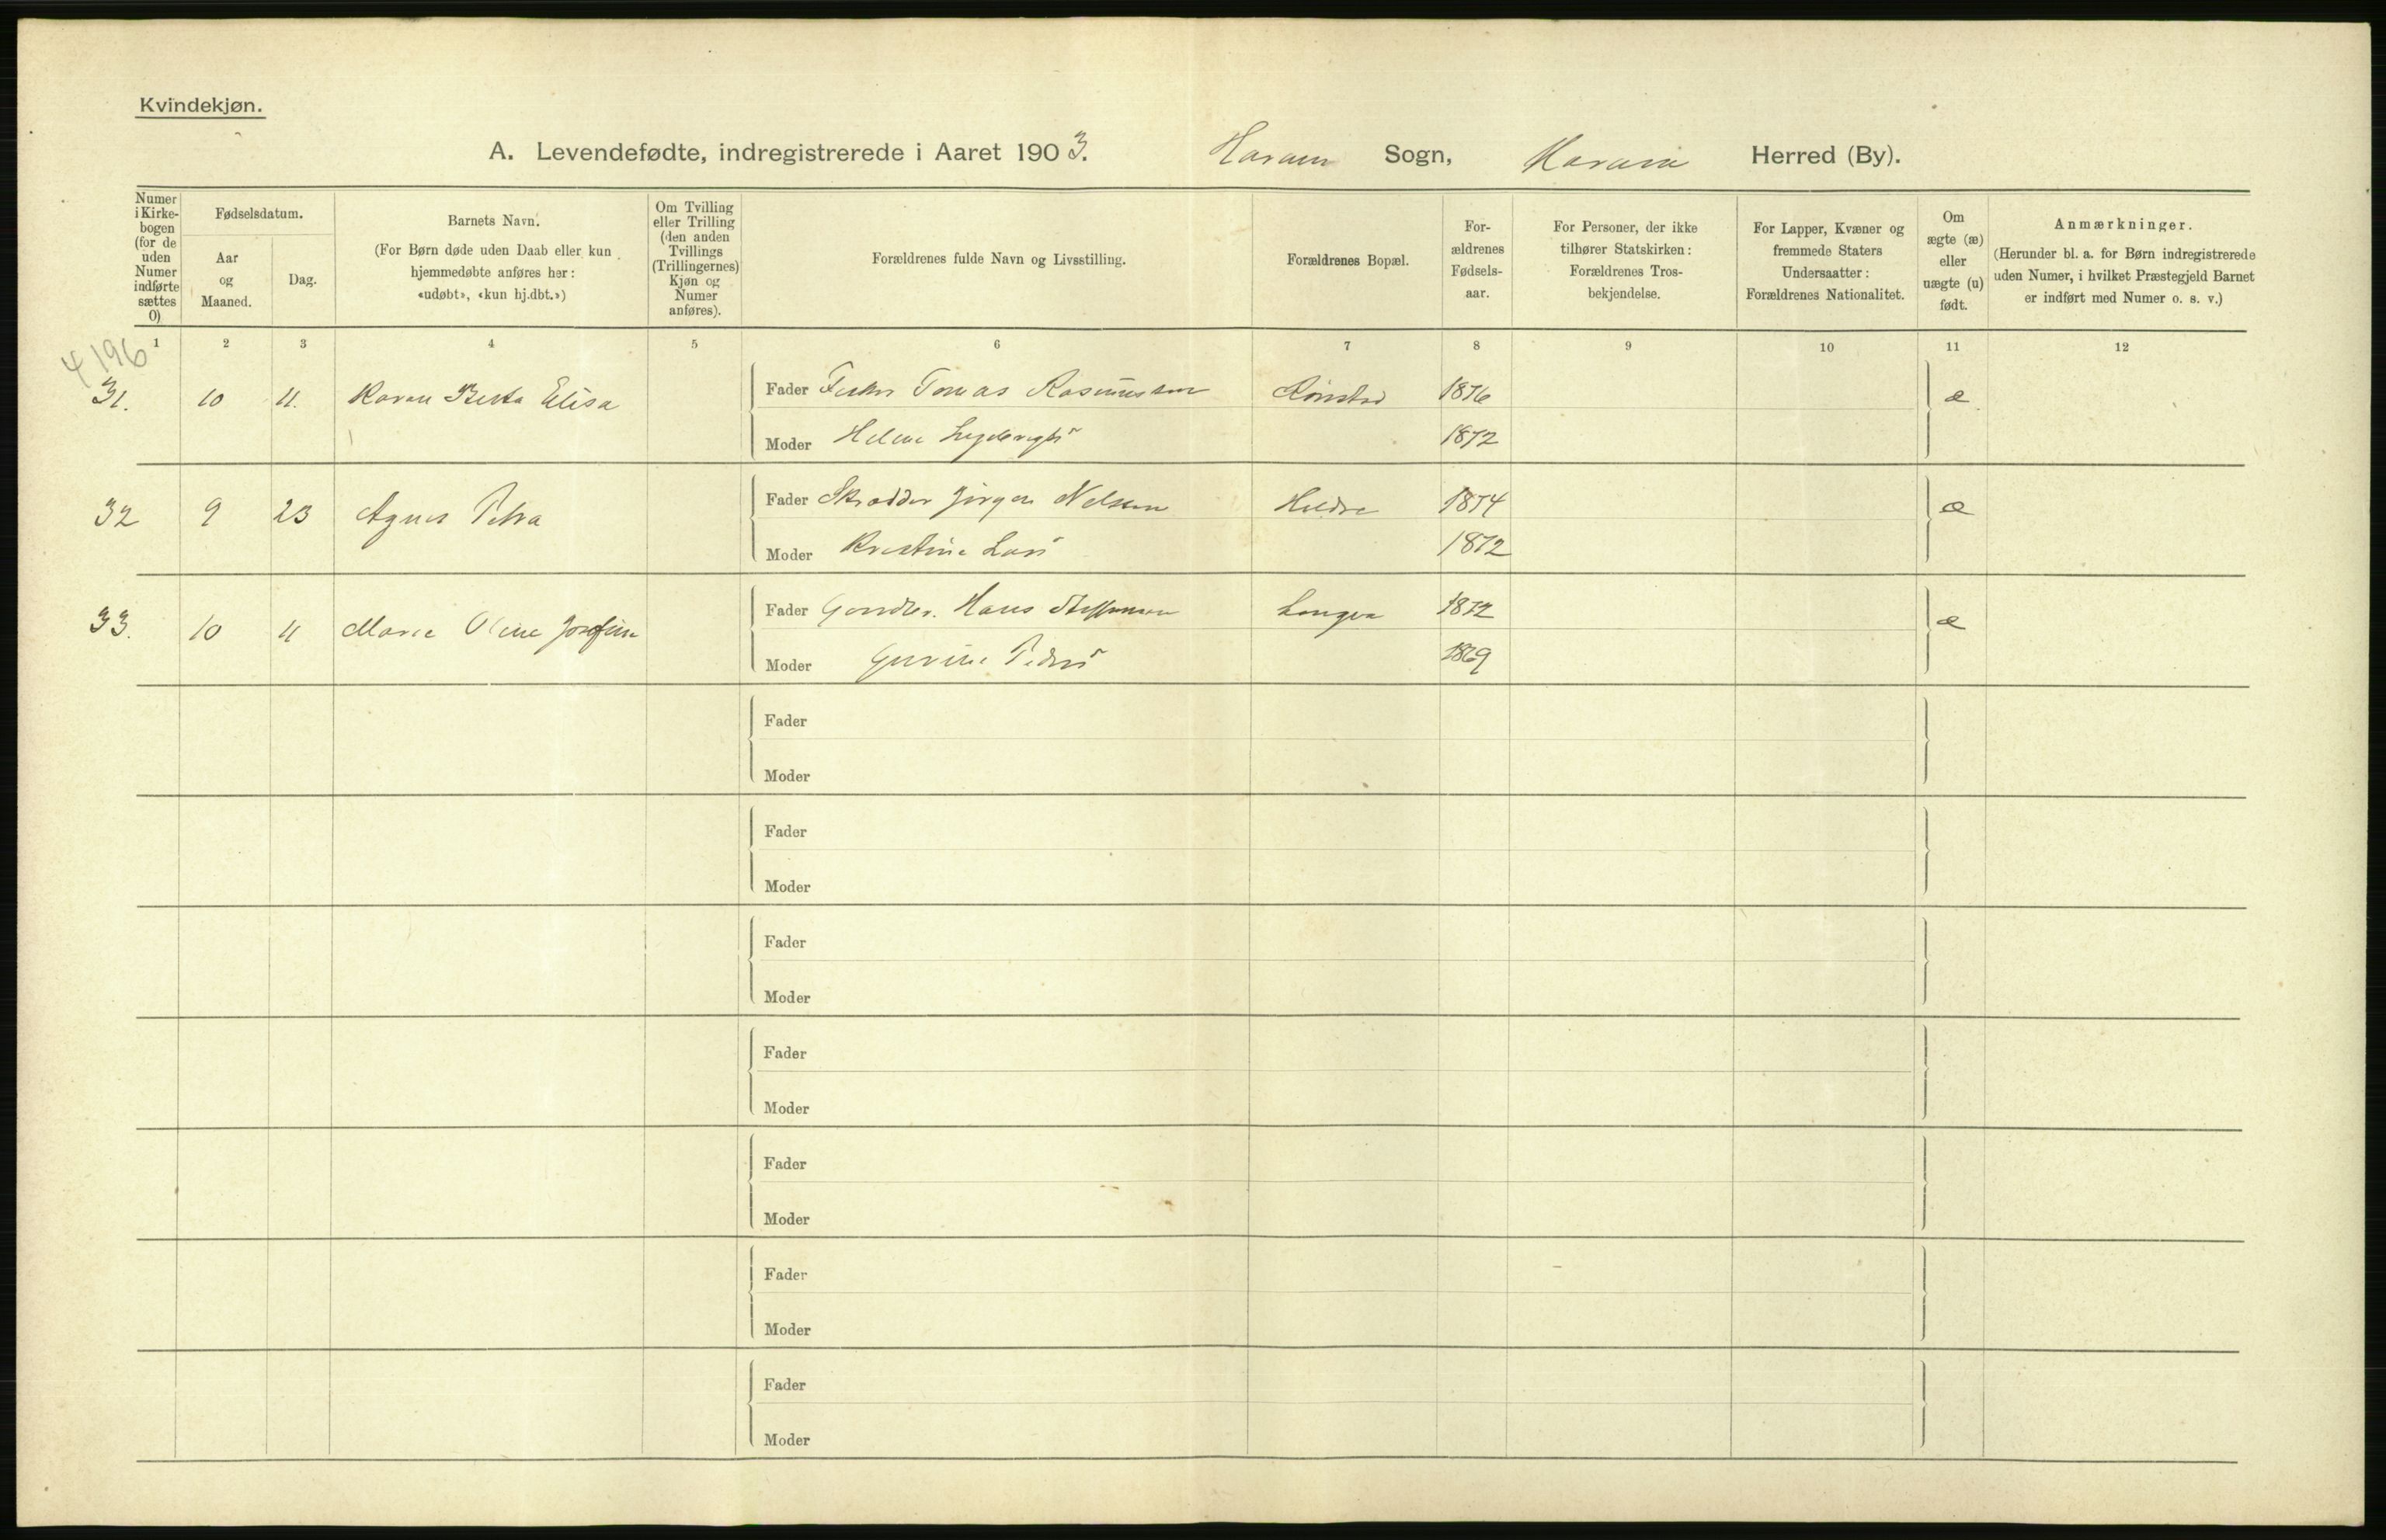 Kvindekjøn.
A. Levendefødte, indregistrerede i Aaret 1903. Haram Sogn, Haram Herred (By).
Numer i Kirke-bogen (for de uden Numer indførte sættes 0)
Fødselsdatum.
Aar og Maaned.
Dag.
Barnets Navn.
(For Børn døde uden Daab eller kun
hjemmedøbte anføres her:
«udøbt», «kun hj.dbt.»)
Om Tvilling
eller Trilling
(den anden
Tvillings
(Trillingernes)
Kjøn og
Numer
anføres).
Forældrenes fulde Navn og Livsstilling.
Forældrenes Bopæl.
For-
ældrenes
Fødsels-
aar.
For Personer, der ikke
tilhører Statskirken:
Forældrenes Tros-
bekjendelse.
For Lapper, Kvæner og
fremmede Staters
Undersaatter:
Forældrenes Nationalitet.
Om
ægte (æ)
eller
uægte (u)
født.
Anmærkninger.
(Herunder bl. a. for Børn indregistrerede
uden Numer, i hvilket Præstegjeld Barnet
er indført med Numer o. s. v.)
1 2 3 4 5 6 7 8 9 10 11 12
4196
31. 10 11. Karen Berta Elisa Fader Fisker Tomas Rasmussen Rønstad 1876 æ
Moder Helene 1872
32 9 23 Agnes Petra Fader Skrædder Jørgen Nelsen Hildre 1874 æ
Moder Kristine Lars 1872
33. 10 11 Marie Oline Josefine Fader Gaardbr. Hans Steffensen Longva 1872 æ
Moder Gurine Peders 1869
Fader
Moder
Fader
Moder
Fader
Moder
Fader
Moder
Fader
Moder
Fader
Moder
Fader
Moder